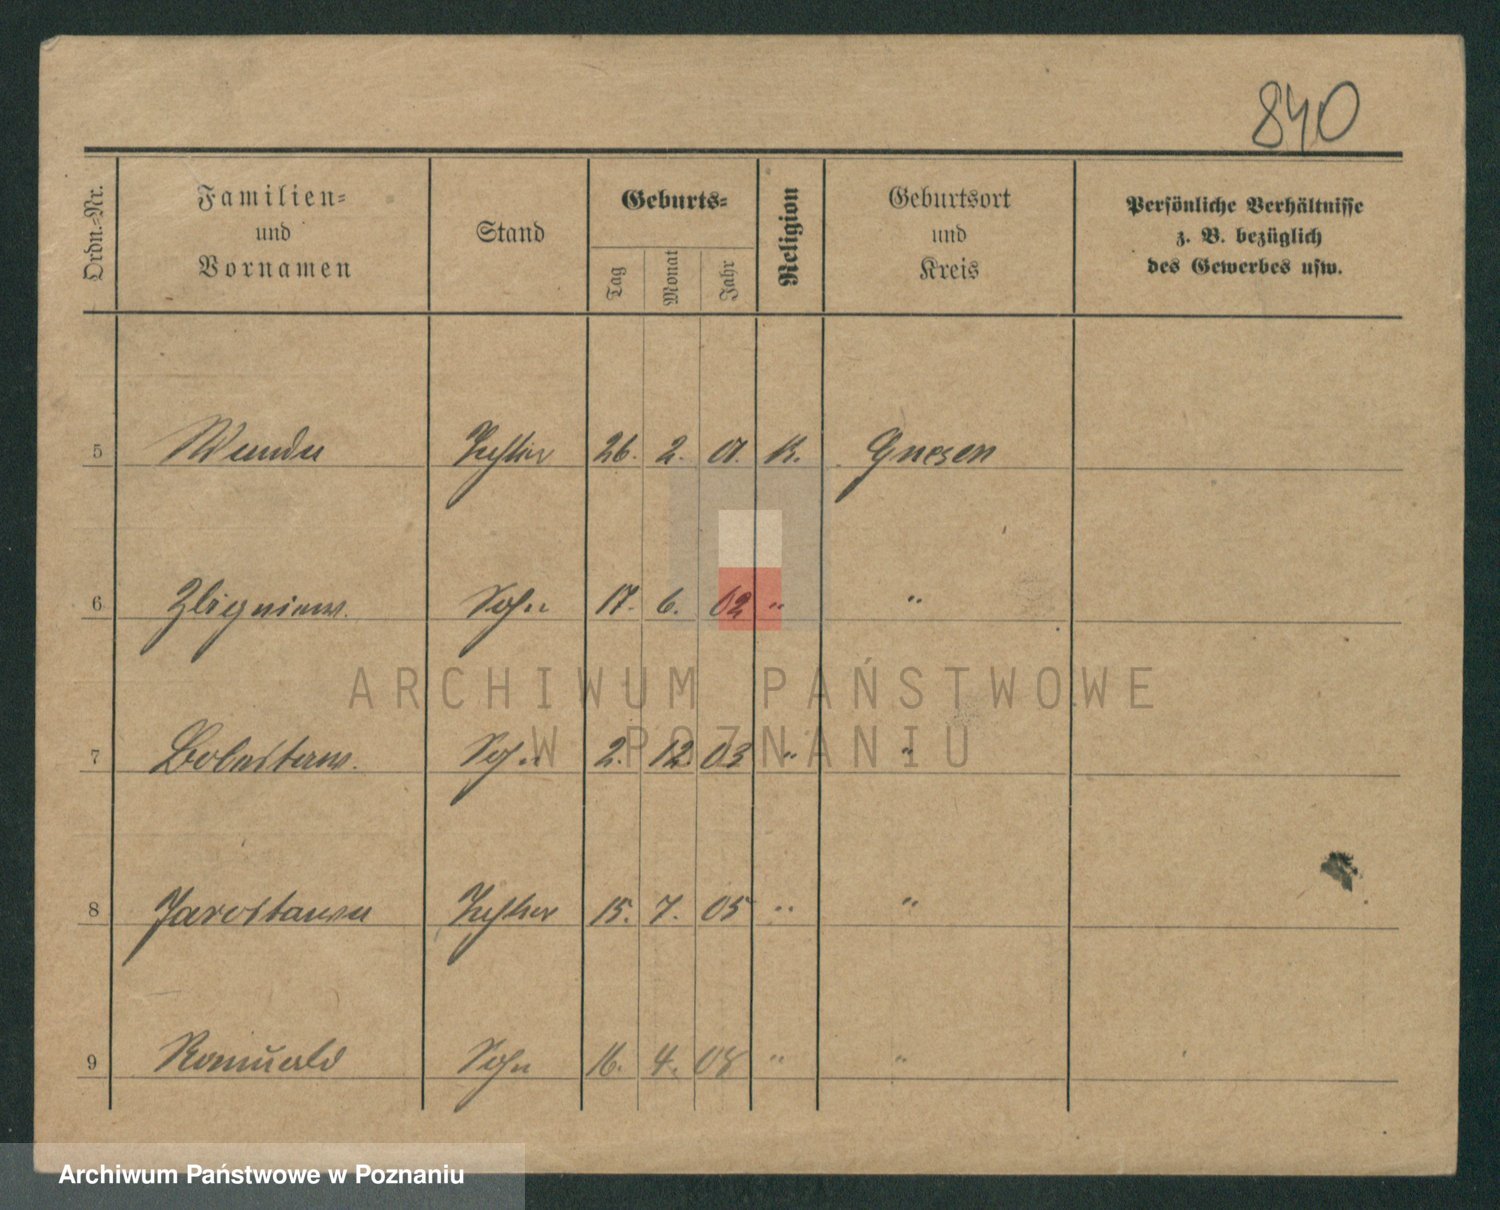 840
Ordn.-Nr.
Familien-
und
Vornamen
Stand
Geburts-
Tag
Monat
Jahr
Religion
Geburtsort
und
Kreis
Persönliche Verhältnisse
z. B. bezüglich
des Gewerbes usw.
5 Wanda Tochter 26. 2. 01. K. Gnesen
6 Zbigniew. Sohn 17. 6. 02 " "
ARCHIWUM PAŃSTWOWE
W POZNANIU
7 Boleslaw. Sohn 2. 12. 03 " "
8 Jaroslawa Tochter 15. 7. 05 " "
9 Romuald Sohn 16. 4. 08 " "
Archiwum Państwowe w Poznaniu